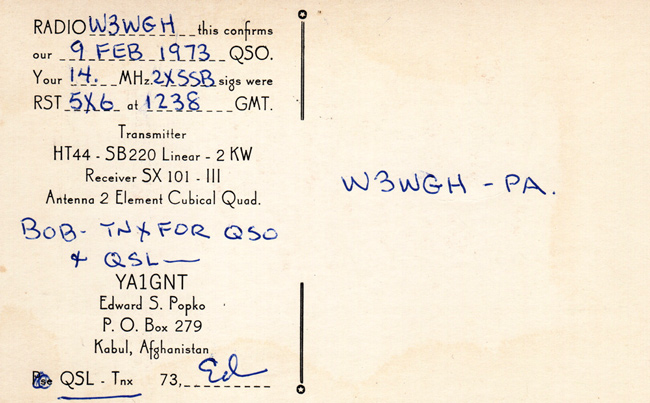 RADIO W3WGH this confirms
our 9 FEB 1973 QSO.
Your 14. MHz. 2XSSB sigs were
RST 5X6 at 1238 GMT.
Transmitter
HT44 - SB220 Linear - 2 KW
Receiver SX 101 - III
Antenna 2 Element Cubical Quad.
BOB - TNX FOR QSO
& QSL —
YA1GNT
Edward S. Popko
P. O. Box 279
Kabul, Afghanistan
Pse QSL - Tnx 73, Ed
W3WGH - PA.